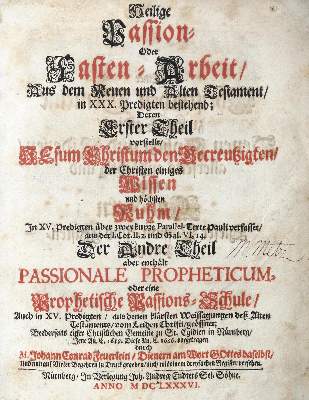 Heilige
Passion-
Oder
Fasten-Arbeit/
Aus dem Neuen und Alten Testament/
in XXX. Predigten bestehend;
Deren
Erster Theil
vorstellet/
JEsum Christum den Gecreutzigten/
der Christen einiges
Wissen
und höchsten
Ruhm/
In XV. Predigten über zwey kurtze Parallel-Texte Pauli verfasset/
aus der I. Cor. II, 2. und Gal. VI, 14.
Der Andre Theil
aber enthält
PASSIONALE PROPHETICUM,
oder eine
Prophetische Passions-Schule/
Auch in XV. Predigten/ aus denen klärsten Weissagungen deß Alten
Testaments/ vom Leiden Christi/ eröffnet;
Beederseits einer Christlichen Gemeine zu St. Egidien in Nürnberg/
durch
M. Johann Conrad Feuerlein/ Dienern am Wort GOttes daselbst/
Nürnberg/ In Verlegung Joh. Andreæ Endters Sel. Söhne.
ANNO M DC LXXXVI.